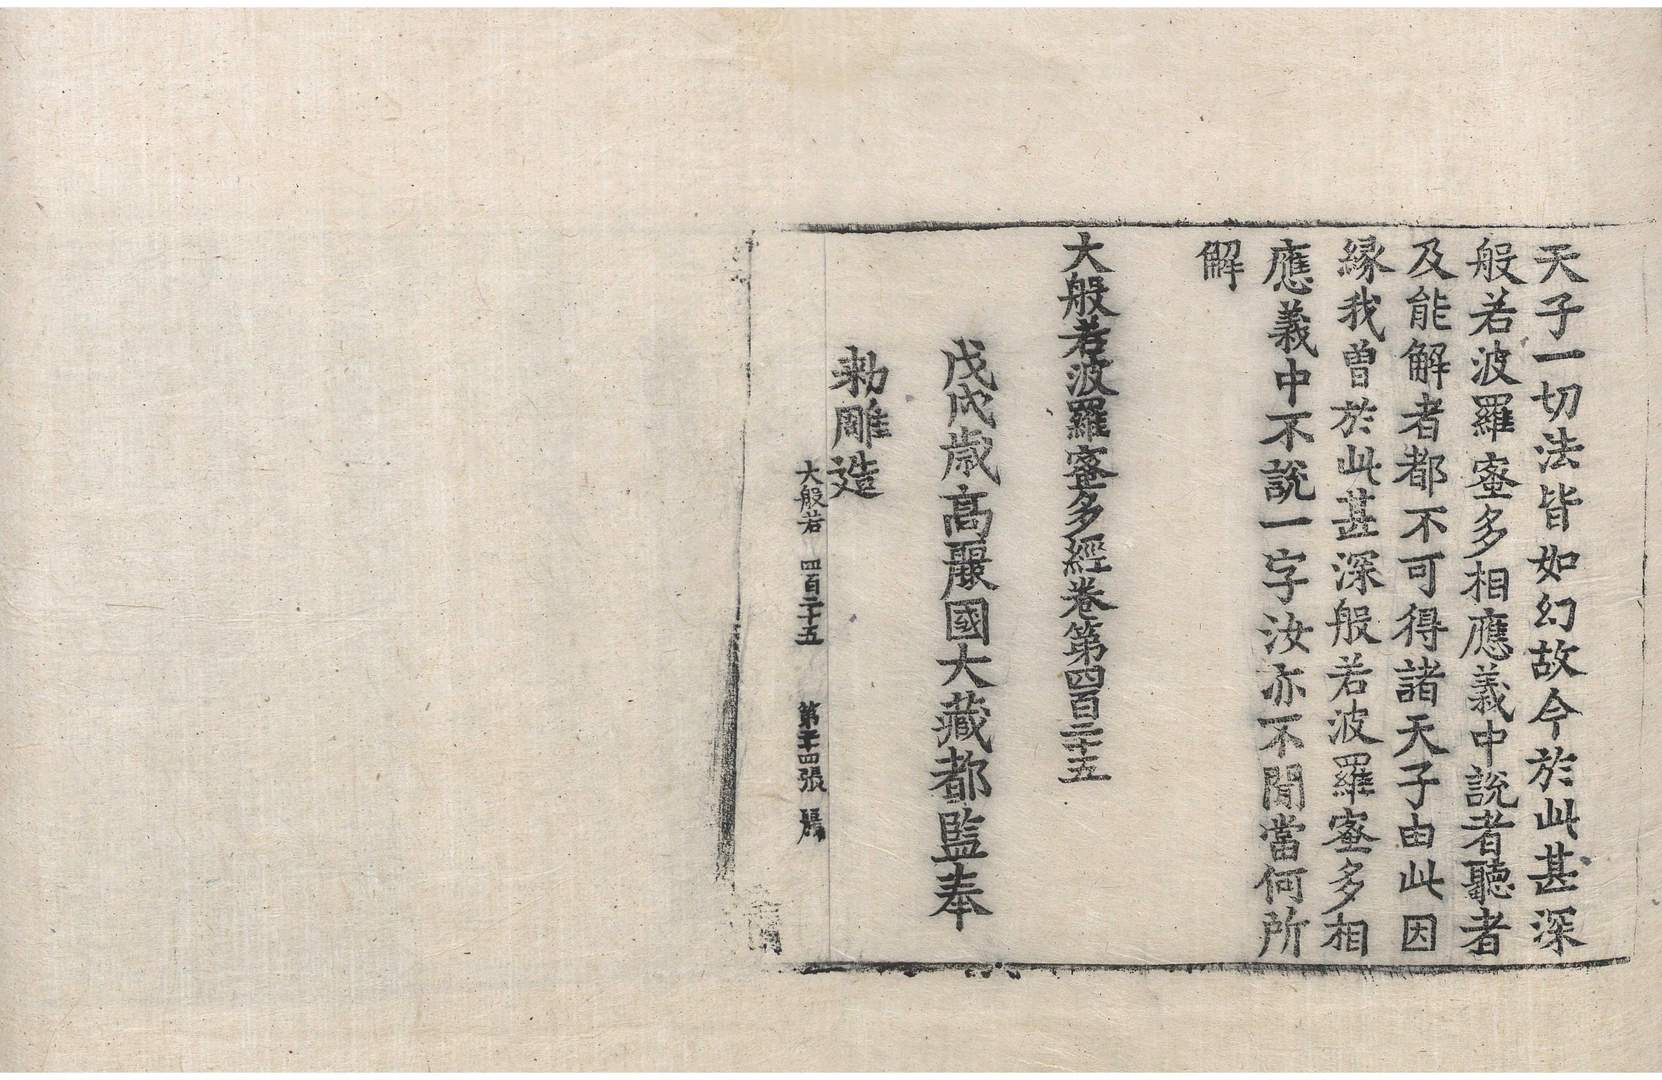 天子一切法皆如幻故今於此甚深
般若波羅蜜多相應義中說者聽者
及能解者都不可得諸天子由此因
緣我曾於此甚深般若波羅蜜多相
應義中不說一字汝亦不聞當何所
解
大般若波羅蜜多經卷第四百二十五
戊戌歲高麗國大藏都監奉
勅雕造
大般若 四百二十五 第二十四張